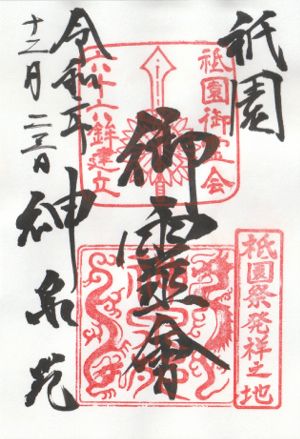 祇園
御靈會
令和元年
十二月二十五日
神泉苑
祇園御霊会
六十六鉾建立
祇園祭発祥之地